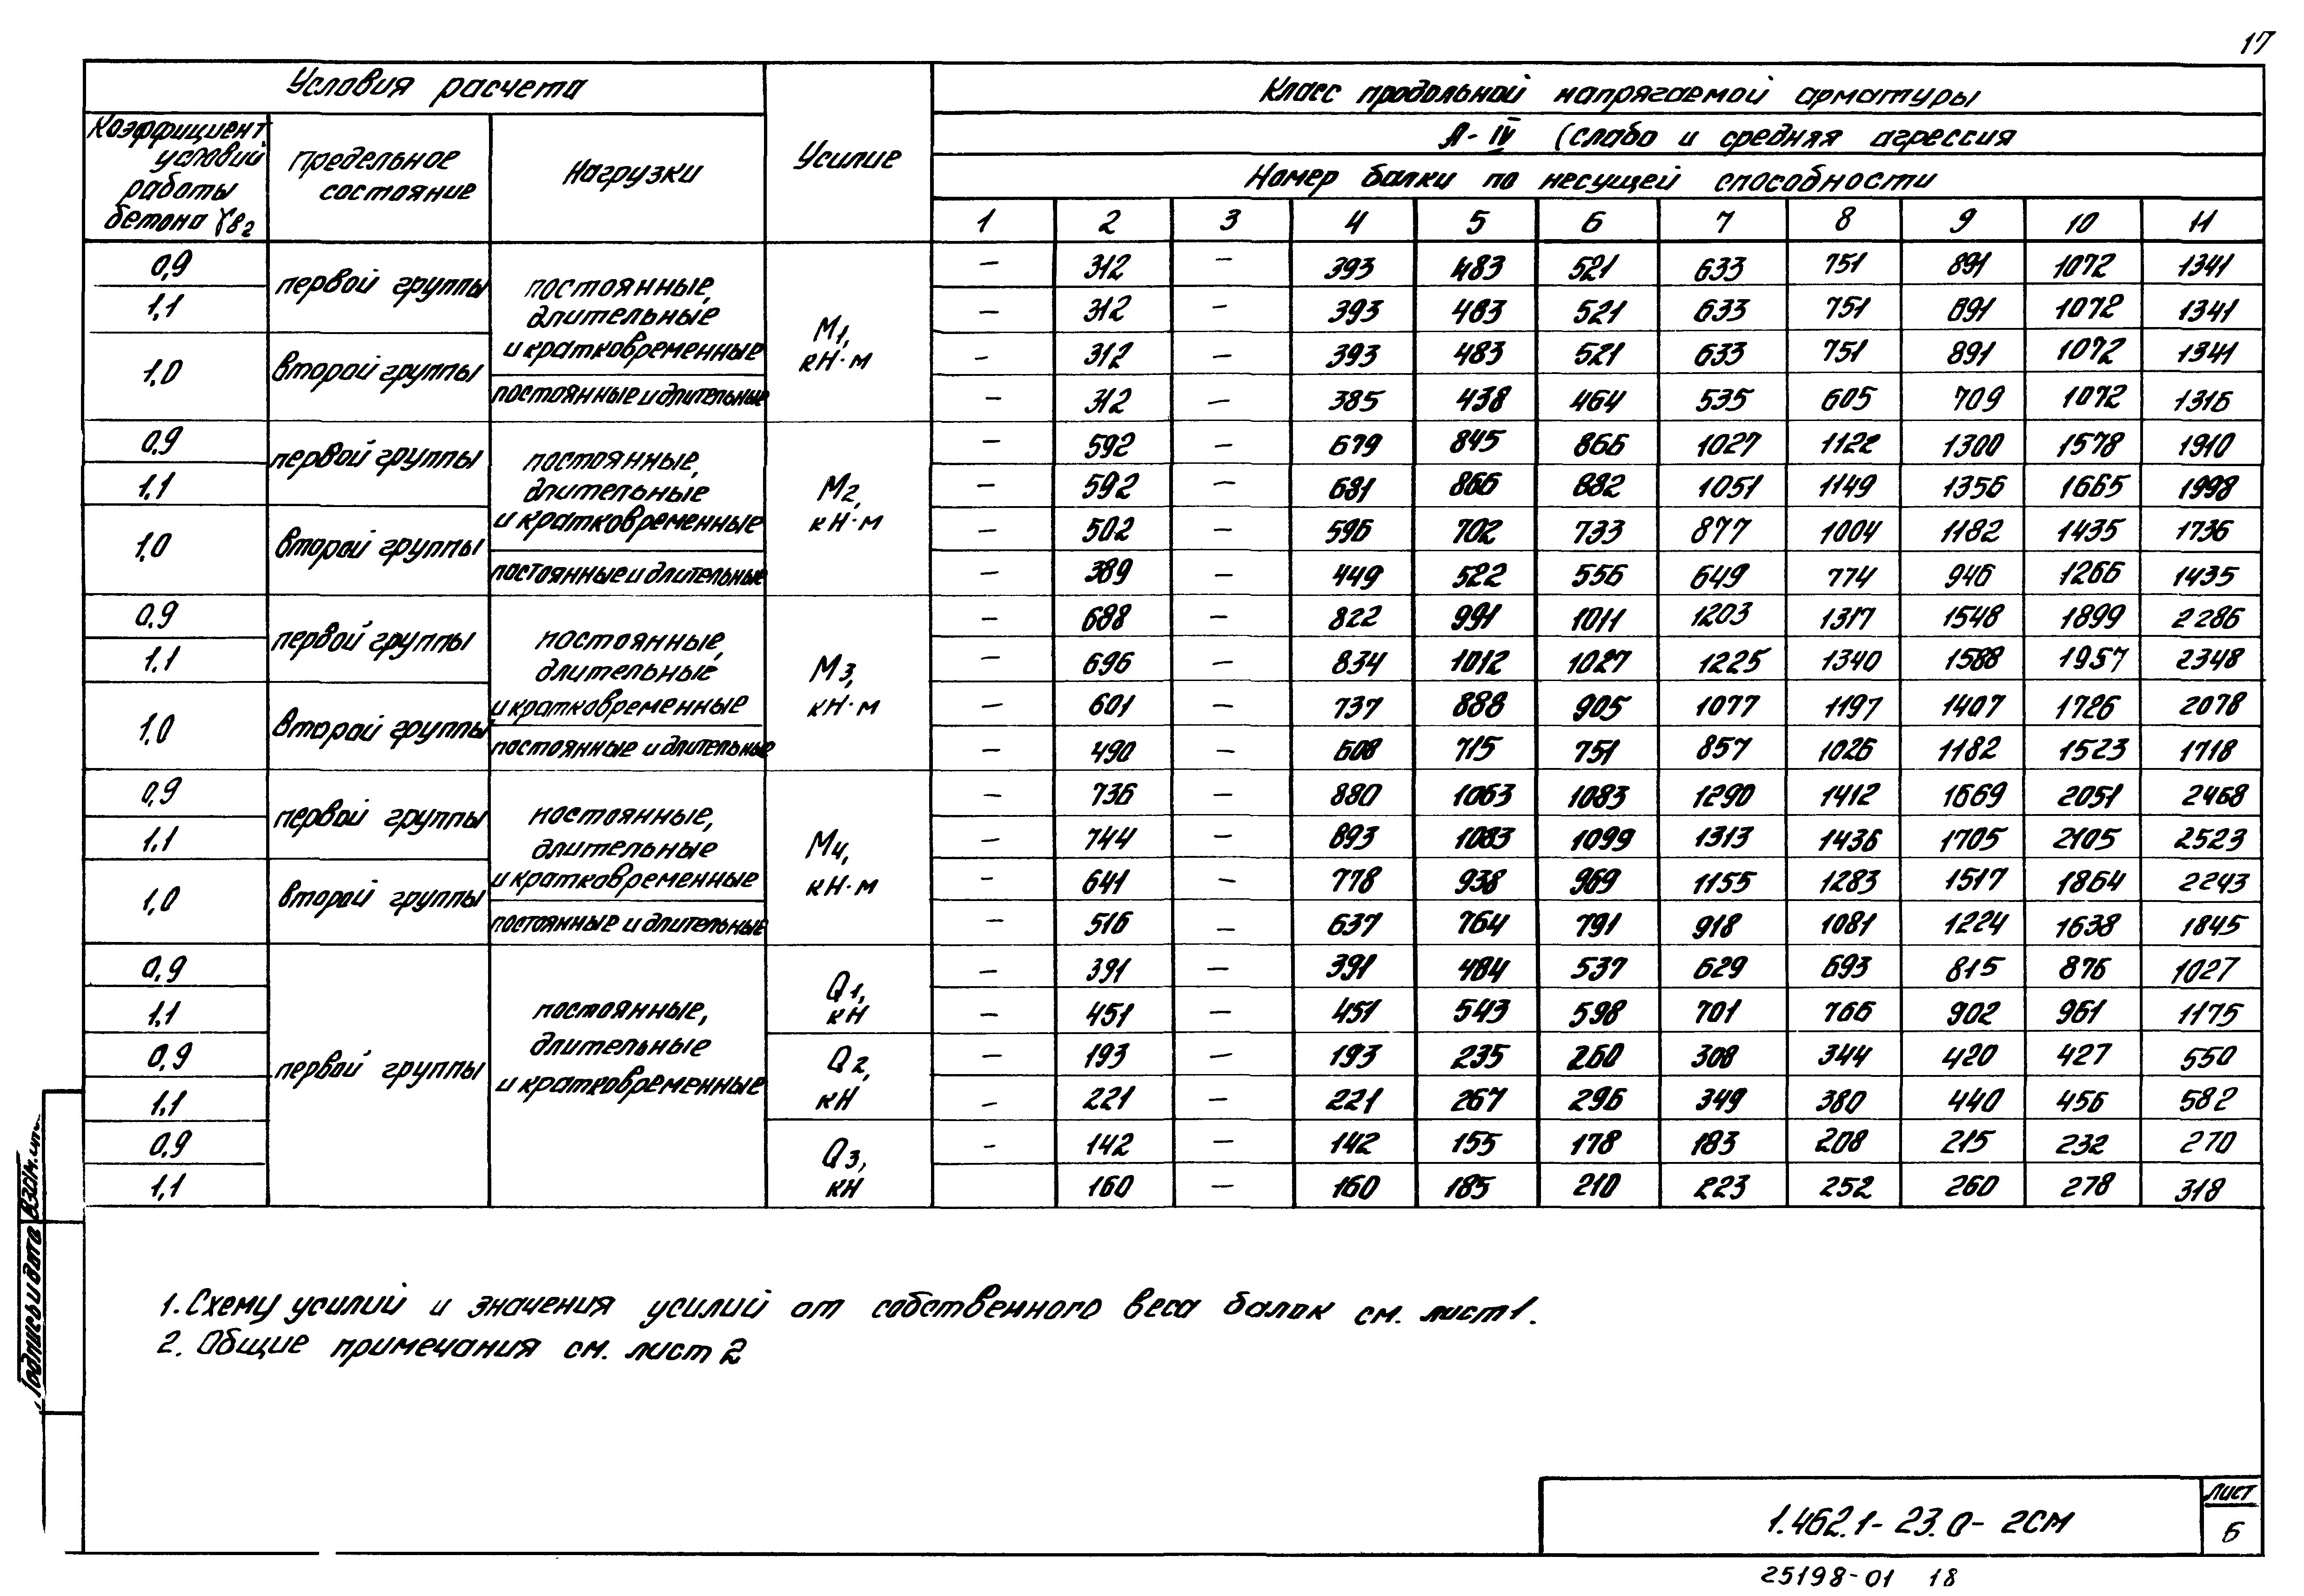 17
Условия расчета
Усилие
Класс продольной напрягаемой арматуры
Коэффициент условий работы бетона γв2
Предельное состояние
Нагрузки
А-IV (слабо и средняя агрессия
Номер балки по несущей способности
1 2 3 4 5 6 7 8 9 10 11
0,9 первой группы постоянные, длительные и кратковременные М1, кН·м – 312 – 393 483 521 633 751 891 1072 1341
1,1 – 312 – 393 483 521 633 751 891 1072 1341
1,0 второй группы – 312 – 393 483 521 633 751 891 1072 1341
постоянные и длительные – 312 – 385 438 464 535 605 709 1072 1316
0,9 первой группы постоянные, длительные и кратковременные М2, кН·м – 592 – 679 845 866 1027 1122 1300 1578 1910
1,1 – 592 – 681 866 882 1051 1149 1356 1665 1998
1,0 второй группы – 502 – 596 702 733 877 1004 1182 1435 1736
постоянные и длительные – 389 – 449 522 556 649 774 946 1266 1435
0,9 первой группы постоянные, длительные и кратковременные М3, кН·м – 688 – 822 991 1011 1203 1317 1548 1899 2286
1,1 – 696 – 834 1012 1027 1225 1340 1588 1957 2348
1,0 второй группы – 601 – 737 888 905 1077 1197 1407 1726 2078
постоянные и длительные – 490 – 608 715 751 857 1026 1182 1523 1718
0,9 первой группы постоянные, длительные и кратковременные М4, кН·м – 736 – 880 1063 1083 1290 1412 1669 2051 2468
1,1 – 744 – 893 1083 1099 1313 1436 1705 2105 2523
1,0 второй группы – 641 – 778 938 969 1155 1283 1517 1864 2243
постоянные и длительные – 516 – 637 764 791 918 1081 1224 1638 1845
0,9 первой группы постоянные, длительные и кратковременные Q1, кН – 391 – 391 484 537 629 693 815 876 1027
1,1 – 451 – 451 543 598 701 766 902 961 1175
0,9 Q2, кН – 193 – 193 235 260 308 344 420 427 550
1,1 – 221 – 221 267 296 349 380 440 456 582
0,9 Q3, кН – 142 – 142 155 178 183 208 215 232 270
1,1 160 – 160 185 210 223 252 260 278 318
1. Схему усилий и значения усилий от собственного веса балок см. лист 1.
2. Общие примечания см. лист 2
Подпись и дата
Взам. инв.
1.462.1-23.0-2СМ
Лист
6
25198-01 18